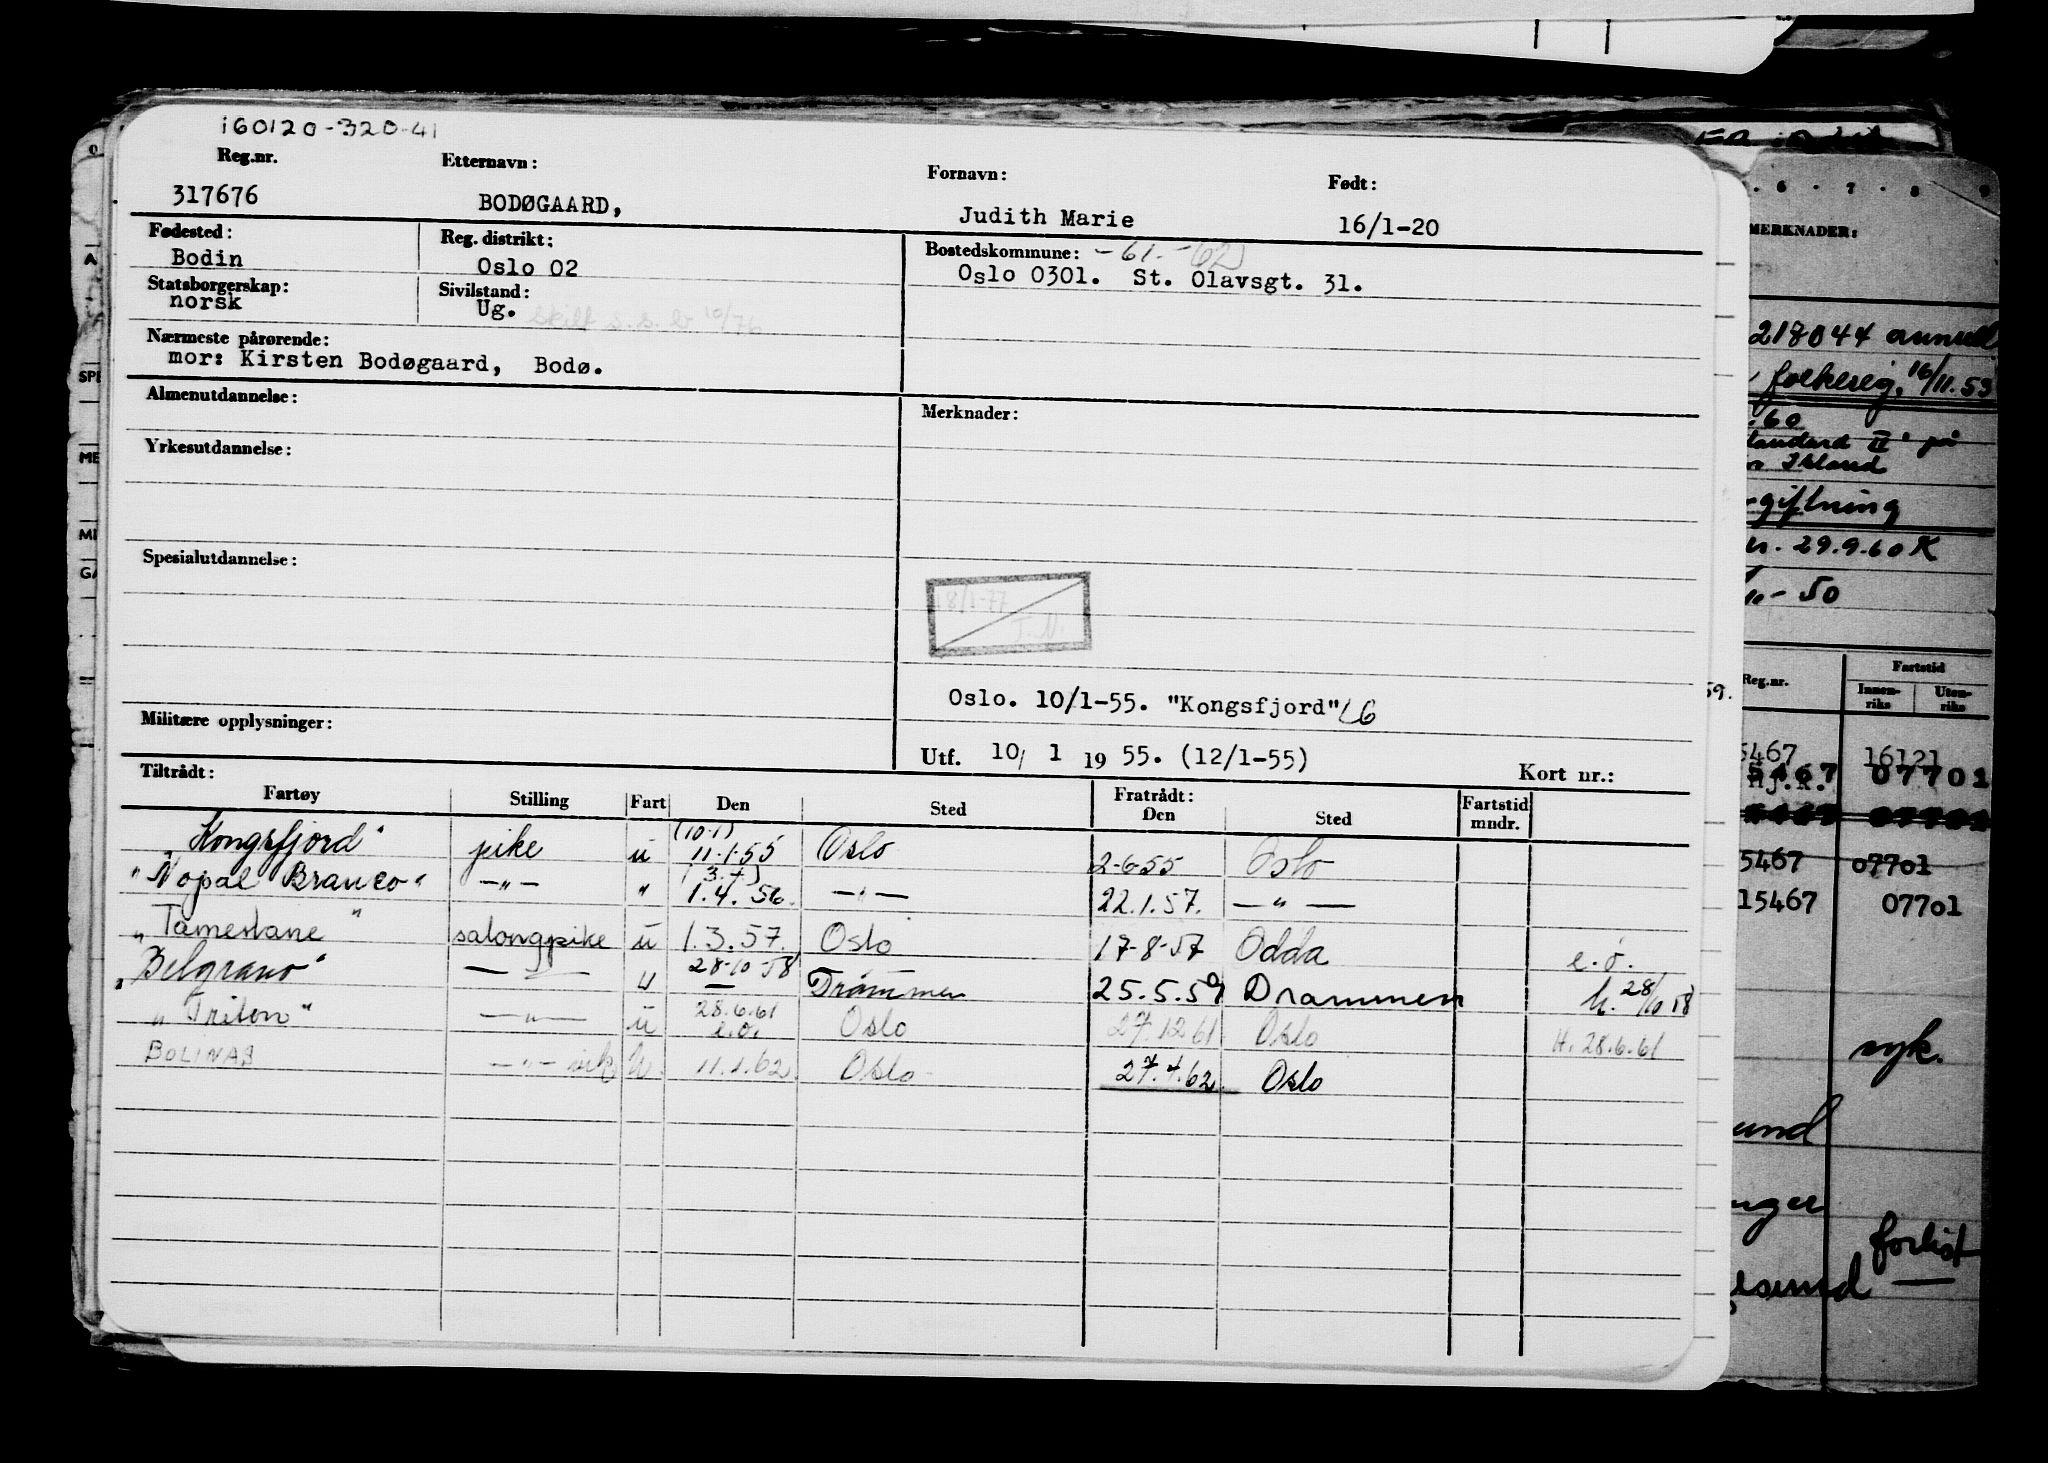 160120-320-41
Reg.nr. Etternavn: Fornavn: Født:
317676 BODØGAARD, Judith Marie 16/1-20
Fødested: Reg. distrikt: Bostedskommune: -61.-62
Bodin Oslo 02 Oslo 0301. St. Olavsgt. 31.
Statsborgerskap: Sivilstand:
norsk Ug. skilt s.s.b 10/76
Nærmeste pårørende:
mor: Kirsten Bodøgaard, Bodø.
Almenutdannelse: Merknader:
Yrkesutdannelse:
Spesialutdannelse:
18/1-77
T.N.
Oslo. 10/1-55. "Kongsfjord"
Militære opplysninger:
Utf. 10/ 1 19 55. (12/1-55) Kort nr.:
Tiltrådt: Fratrådt:
Fartøy Stilling Fart Den Sted Den Sted Fartstid mndr.
"Kongsfjord" pike u (10-1) 11-1-55 Oslo 2-6-55 Oslo
"Nopal Branco" —"— " (3.4) 1.4.56. —"— 22.1.57. —"—
"Tamerlane" salongpike u 1.3.57. Oslo 17-8-57 Odda e.o.
"Belgrano" —"— u 28-10-58 Drammen 25.5.59 Drammen h. 28/10 58
"Triton" —"— u 28.6.61 e.o. Oslo 27.12.61 Oslo H. 28.6.61
BOLINAS —"— 11.1.62. Oslo 27.4.62. Oslo
6 . 7 . 8 . 9
MERKNADER:
218044
folkereg. 16/11.53
.60
Island
29.9.60 K
- 50
59.
Reg.nr. Fartstid
Innenriks Utenriks
5467 16121
5467 07701
5467 07701
15467 07701
syk.
forlist